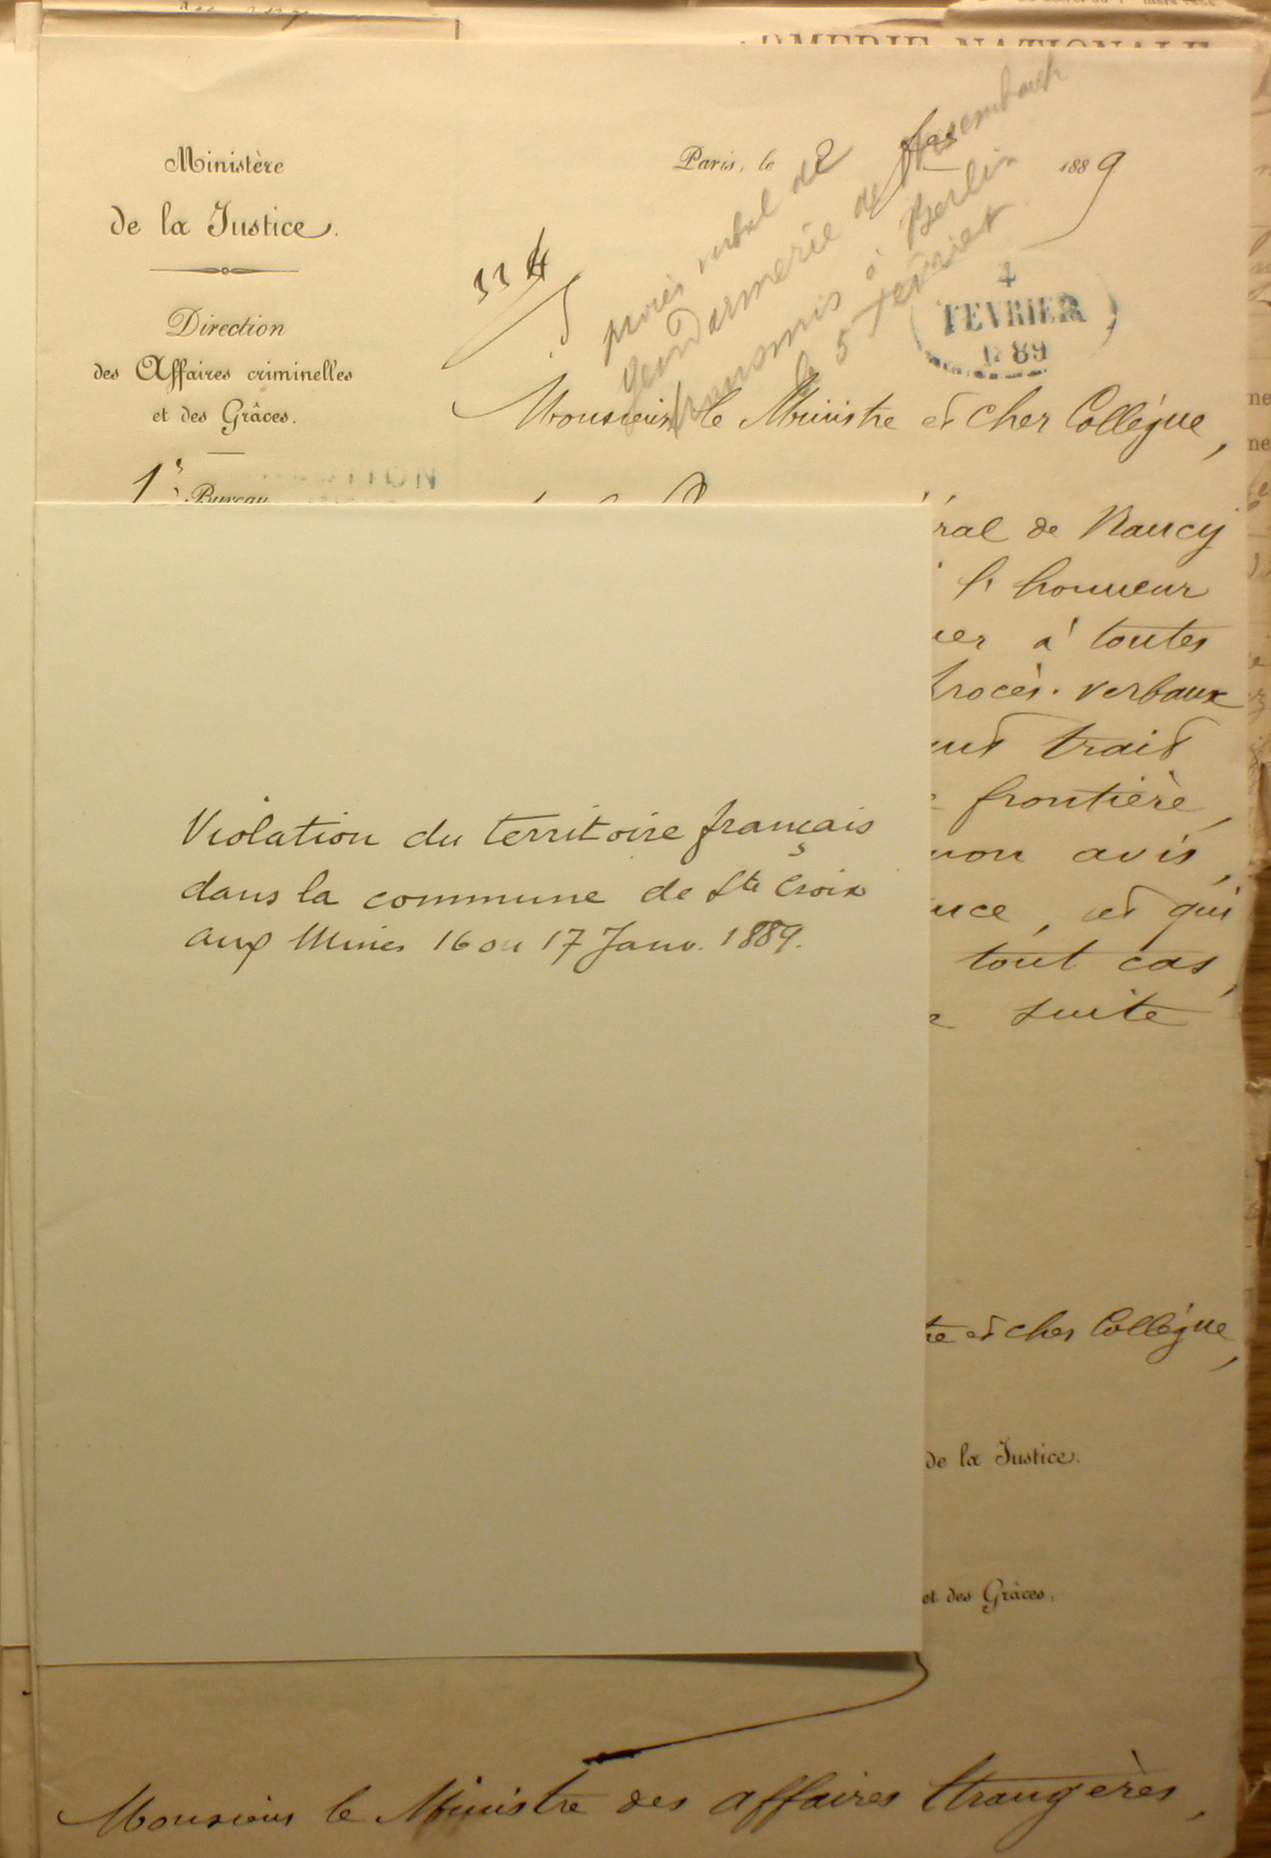 MERIE NATIONALE
Ministère
de la Justice.
Direction
des Affaires criminelles
et des Grâces.
1r Bureau
Paris, le 2 1889
procès verbal de
Gendarmerie de
transmis à Berlin
le 5 Fevrier
4
FEVRIER
89
Monsieur le Ministre et cher Collègue,
ral de Nancy
l'honneur
er à toutes
procès-verbaux
trait
frontière,
mon avis,
nce, et qui
tout cas,
suite
Violation du territoire français
dans la commune de Ste Croix
aux Mines 16 ou 17 Janv. 1889.
re et cher Collègue,
de la Justice.
et des Grâces,
Monsieur le Ministre des affaires Etrangères,